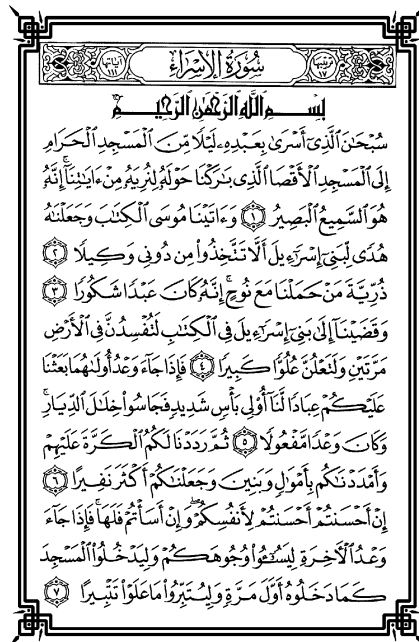 ترتيبها ١٧ سُورَةُ الإِسْرَاءِ آياتها ١١١
بِسْمِ اللَّهِ الرَّحْمَٰنِ الرَّحِيمِ
سُبْحَانَ الَّذِي أَسْرَىٰ بِعَبْدِهِ لَيْلًا مِّنَ الْمَسْجِدِ الْحَرَامِ
إِلَى الْمَسْجِدِ الْأَقْصَا الَّذِي بَارَكْنَا حَوْلَهُ لِنُرِيَهُ مِنْ ءَايَاتِنَا إِنَّهُ
هُوَ السَّمِيعُ الْبَصِيرُ ١ وَءَاتَيْنَا مُوسَى الْكِتَابَ وَجَعَلْنَاهُ
هُدًى لِّبَنِي إِسْرَاءِيلَ أَلَّا تَتَّخِذُوا مِن دُونِي وَكِيلًا ٢
ذُرِّيَّةَ مَنْ حَمَلْنَا مَعَ نُوحٍ إِنَّهُ كَانَ عَبْدًا شَكُورًا ٣
وَقَضَيْنَا إِلَىٰ بَنِي إِسْرَاءِيلَ فِي الْكِتَابِ لَتُفْسِدُنَّ فِي الْأَرْضِ
مَرَّتَيْنِ وَلَتَعْلُنَّ عُلُوًّا كَبِيرًا ٤ فَإِذَا جَاءَ وَعْدُ أُولَاهُمَا بَعَثْنَا
عَلَيْكُمْ عِبَادًا لَّنَا أُولِي بَأْسٍ شَدِيدٍ فَجَاسُوا خِلَالَ الدِّيَارِ
وَكَانَ وَعْدًا مَّفْعُولًا ٥ ثُمَّ رَدَدْنَا لَكُمُ الْكَرَّةَ عَلَيْهِمْ
وَأَمْدَدْنَاكُم بِأَمْوَالٍ وَبَنِينَ وَجَعَلْنَاكُمْ أَكْثَرَ نَفِيرًا ٦
إِنْ أَحْسَنتُمْ أَحْسَنتُمْ لِأَنفُسِكُمْ وَإِنْ أَسَأْتُمْ فَلَهَا فَإِذَا جَاءَ
وَعْدُ الْآخِرَةِ لِيَسُـُٔوا وُجُوهَكُمْ وَلِيَدْخُلُوا الْمَسْجِدَ
كَمَا دَخَلُوهُ أَوَّلَ مَرَّةٍ وَلِيُتَبِّرُوا مَا عَلَوْا تَتْبِيرًا ٧